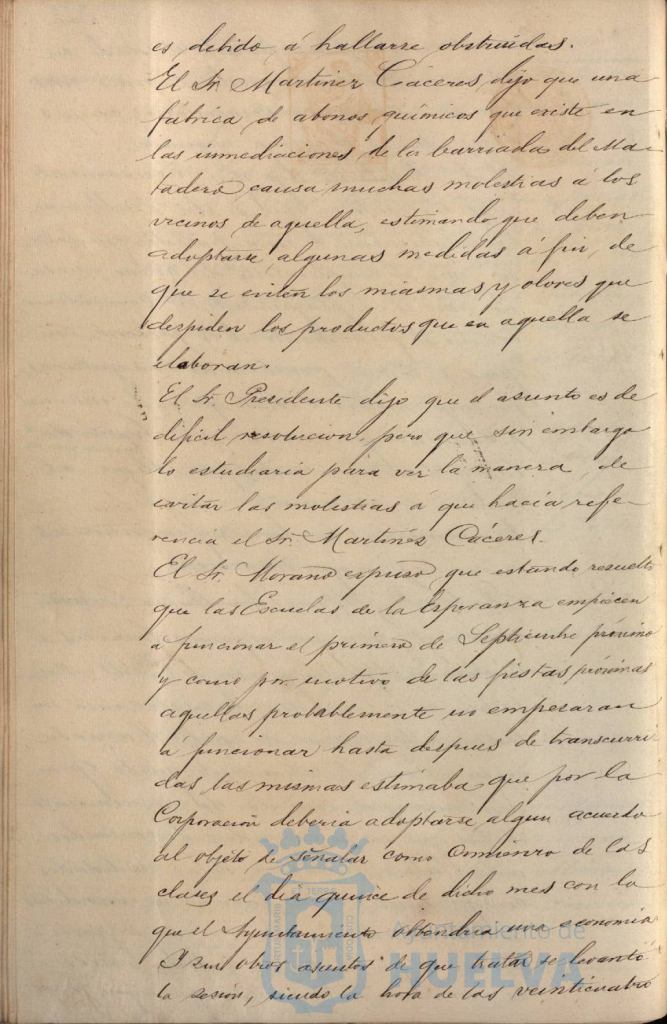 es debido á hallarse obstruidas.
El Sr. Martinez Cáceres, dijo que una
fábrica de abonos químicos que existe en
las inmediaciones de la barriada del Ma-
tadero causa muchas molestias á los
vecinos de aquella, estimando que deben
adoptarse algunas medidas á fin de
que se eviten los miasmas y olores que
despiden los productos que en aquella se
elaboran.
El Sr. Presidente dijo que el asunto es de
dificil resolucion, pero que sin embargo
lo estudiaria para ver la manera de
evitar las molestias á que hacía refe-
rencia el Sr. Martinez Cáceres.
El Sr. Morano expuso que estando resuelto
que las Escuelas de la Esperanza empiecen
a funcionar el primero de Septiembre próximo
y como por motivo de las fiestas próximas
aquellas probablemente no empesaran
á funcionar hasta despues de transcurri-
das las mismas estimaba que por la
Corporación deberia adoptarse algun acuerdo
al objeto de señalar como comienzo de las
clases el día quince de dicho mes con lo
que el Ayuntamiento obtendria una economia
Y sin otros asuntos de que tratar se levantó
la sesión, siendo la hora de las veinticuatro
Ayuntamiento de
HUELVA